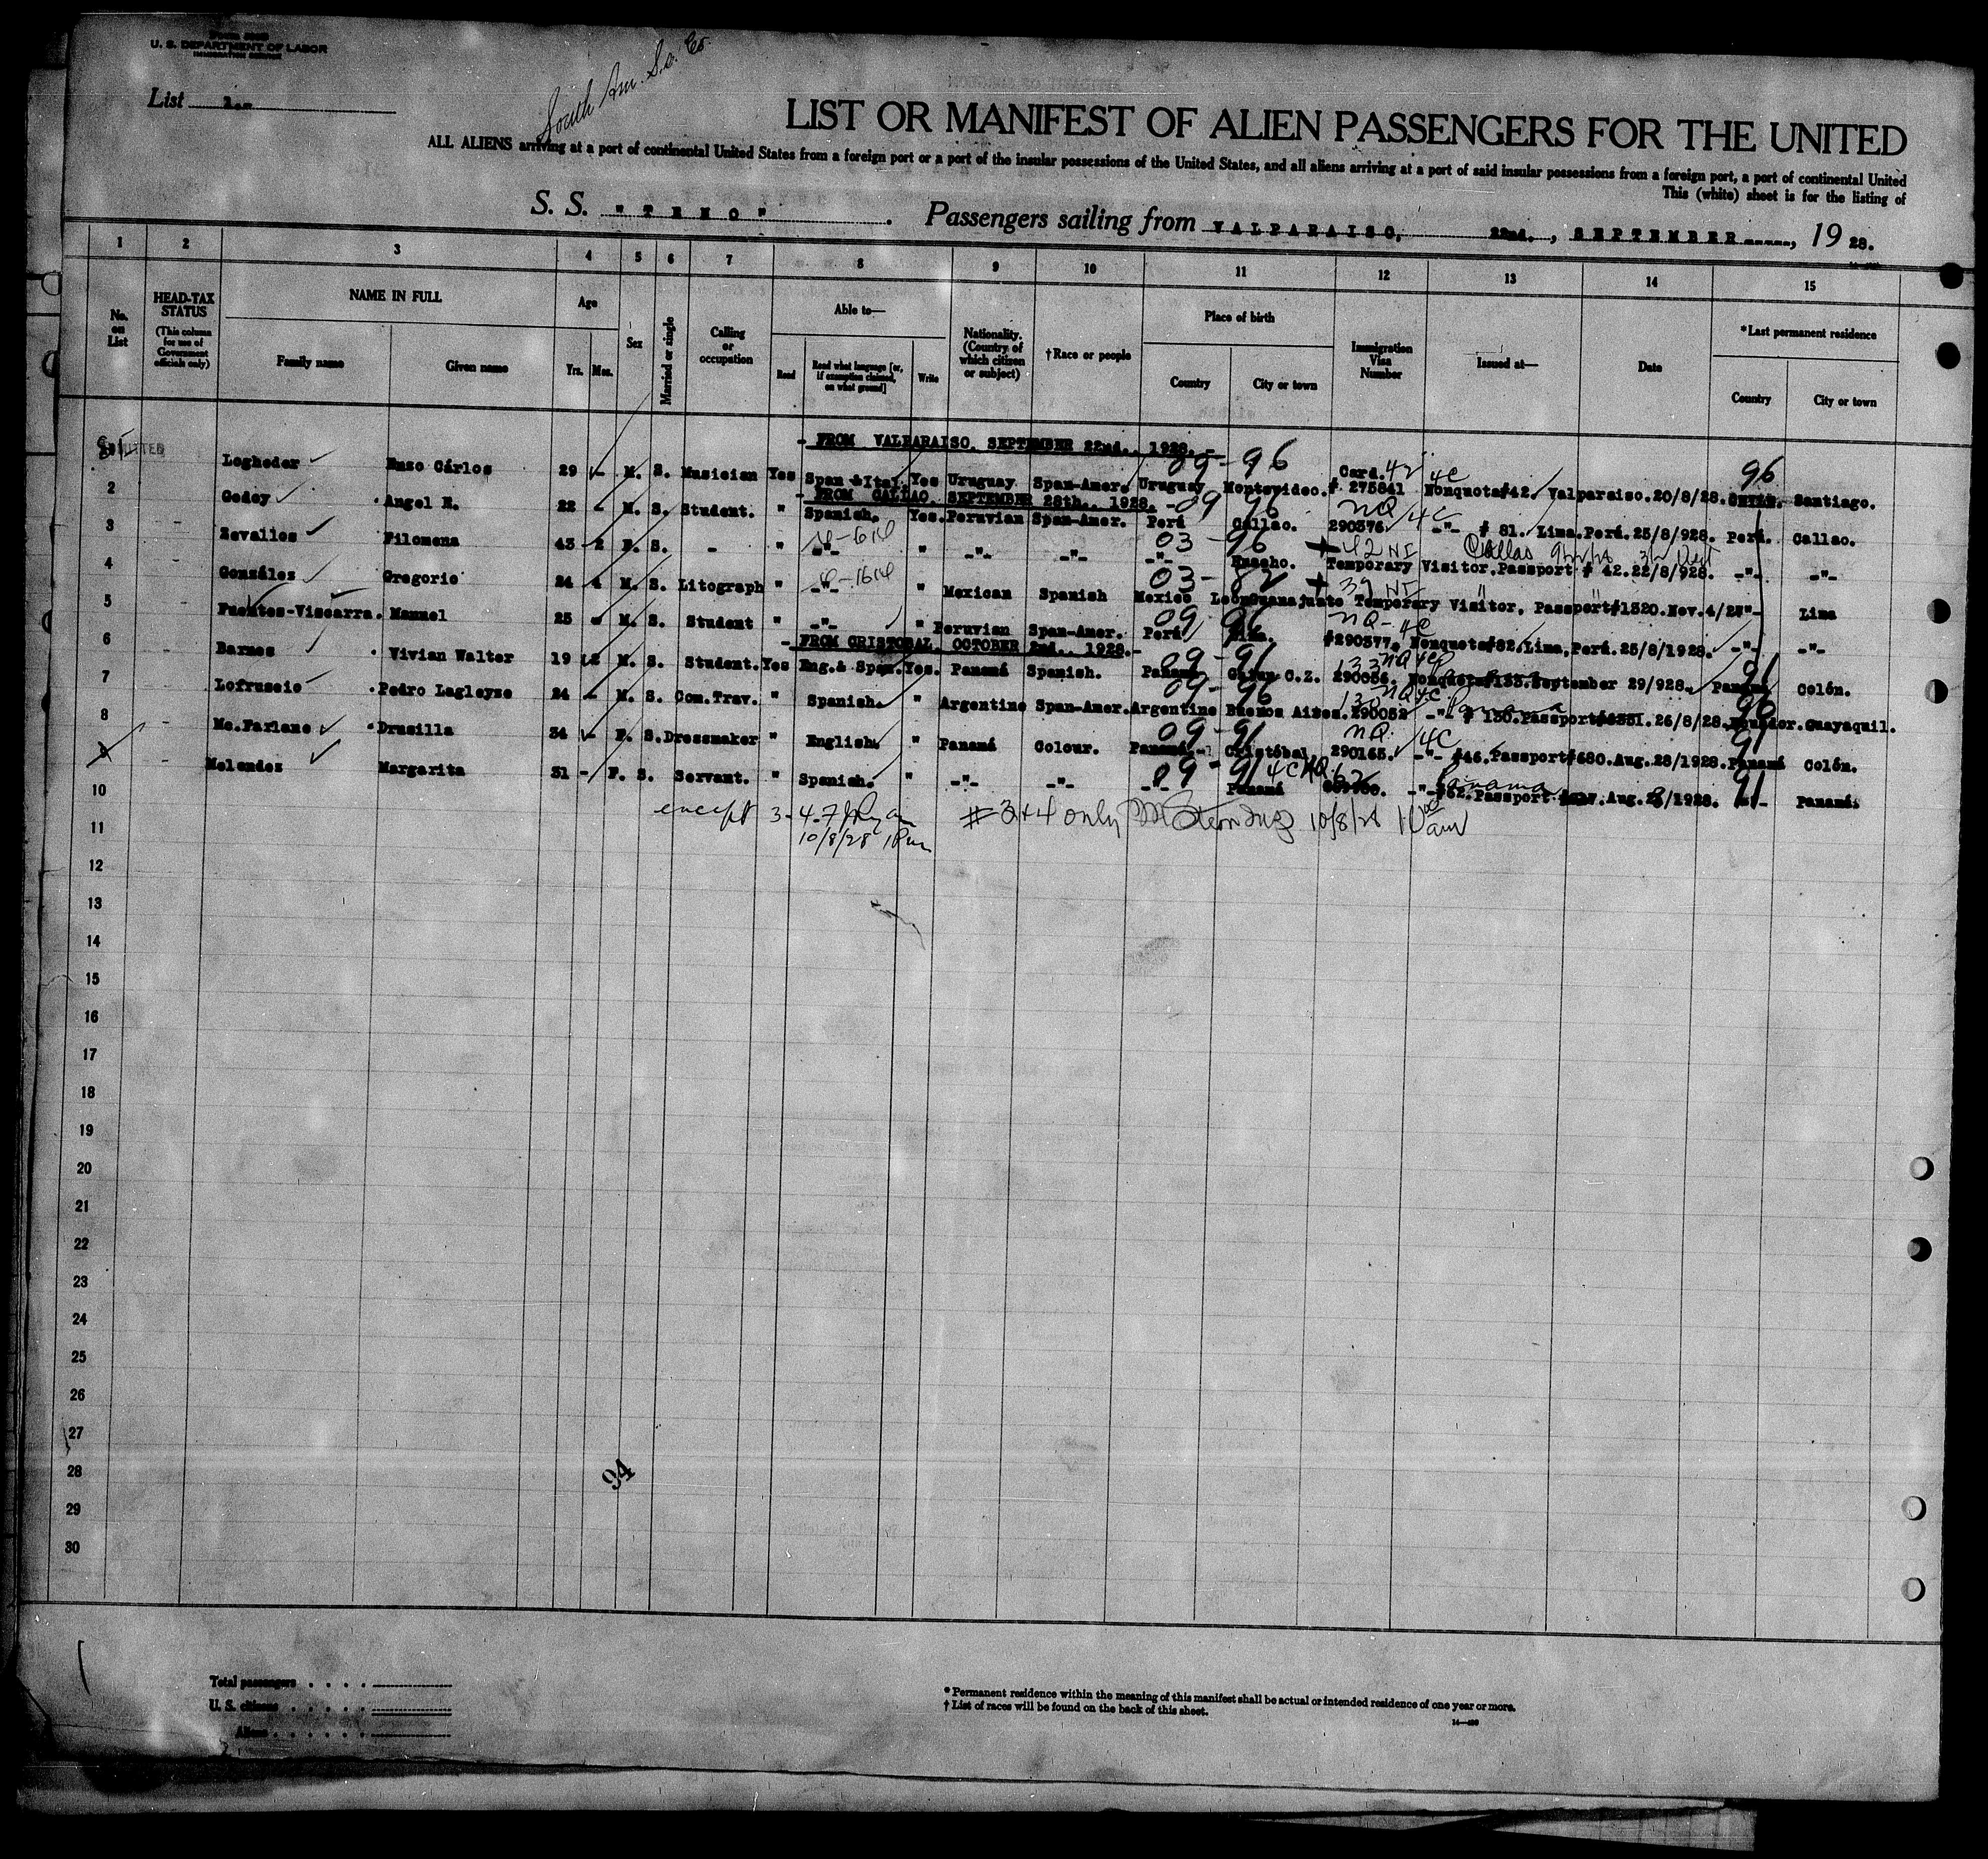 U. S. DEPARTMENT OF LABOR
List
South Am. S.s. Co
LIST OR MANIFEST OF ALIEN PASSENGERS FOR THE UNITED
ALL ALIENS arriving at a port of continental United States from a foreign port or a port of the insular possessions of the United States, and all aliens arriving at a port of said insular possessions from a foreign port, a port of continental United
This (white) sheet is for the listing of
S. S. "TENO". Passengers sailing from VALPARAISO, 22nd., SEPTEMBER, 19 28.
1 2 3 4 5 6 7 8 9 10 11 12 13 14 15
No. on List
HEAD-TAX STATUS (This column for use of Government officials only)
NAME IN FULL
Family name Given name
Age Yrs. Mos.
Sex
Married or single
Calling or occupation
Able to—
Read Read what language [or, if exemption claimed, on what ground] Write
Nationality. (Country of which citizen or subject)
†Race or people
Place of birth
Country City or town
Immigration Visa Number
Issued at—
Date
*Last permanent residence
Country City or town
- FROM VALPARAISO. SEPTEMBER 22nd., 1928. -
09-96 42 4C 96
Legheder Enzo Cárlos 29 - M. S. Musician Yes Span & Ital. Yes Uruguay Span-Amer. Uruguay Montevideo. Card. # 275841 Nonquota#42. Valparaiso. 20/8/28. Santiago.
- FROM CALLAO. SEPTEMBER 28th., 1928. -
09 96 NQ 4C
2 Godoy Angel R. 22 - M. S. Student. " Spanish. Yes. Peruvian Span-Amer. Perú Callao. 290376. -"- # 81. Lima.Perú. 25/8/928. Perú. Callao.
03-96 42 NI
3 Zevallos Filomena 43 2 F. S. - " -"- " -"- -"- -"- Huacho. Temporary Visitor.Passport # 42.22/8/928. -"- -"-
03-82 39 NI
4 González Gregorio 24 4 M. S. Litograph " -"- " Mexican Spanish Mexico Leon Guanajuato Temporary Visitor, Passport#1320.Nov.4/27 -"- Lima
09-96 NQ-4C
5 Fuentes-Viscarra. Manuel 25 - M. S. Student " -"- " Peruvian Span-Amer. Perú Lima. #290377. Nonquota#82.Lima,Perú. 25/8/1928. -"- -"-
- FROM CRISTOBAL, OCTOBER 2nd., 1928. -
09-91 133 NQ 4C 91
6 Barnes Vivian Walter 19 2 M. S. Student. Yes Eng.& Span. Yes. Panamá Spanish. Panamá C.Z. 290056. Nonquota#133.September 29/928. Panamá Colón.
09-96 130 NQ 4C Panama 96
7 Lofruscio Pedro Lagleyze 24 - M. S. Com.Trav. " Spanish. " Argentine Span-Amer. Argentine Buenos Aires. 290052 -"- # 130.Passport 26/8/28. Ecuador. Guayaquil.
09-91 NQ 4C 91
8 Mc.Farlane Drusilla 34 - F. S. Dressmaker " English. " Panamá Colour. Panamá. Cristóbal 290165. -"- #46.Passport#680.Aug.28/1928. Panamá Colón.
09-91 4C NQ 62 Panama 91
9 Melendez Margarita 31 - F. S. Servant. " Spanish. " -"- -"- -"- Panamá -"- #62.Passport Aug. /1928. -"- Panamá.
10 except 3-4-7 J Ryan #3+4 only 10/8/28 11 am
10/8/28 1 Pm
11
12
13
14
15
16
17
18
19
20
21
22
23
24
25
26
27
28
29
30
94
Total passengers
U. S. citizens
Aliens
* Permanent residence within the meaning of this manifest shall be actual or intended residence of one year or more.
† List of races will be found on the back of this sheet.